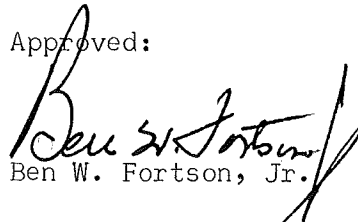 Approved:
Ben W. Fortson
Ben W. Fortson, Jr.